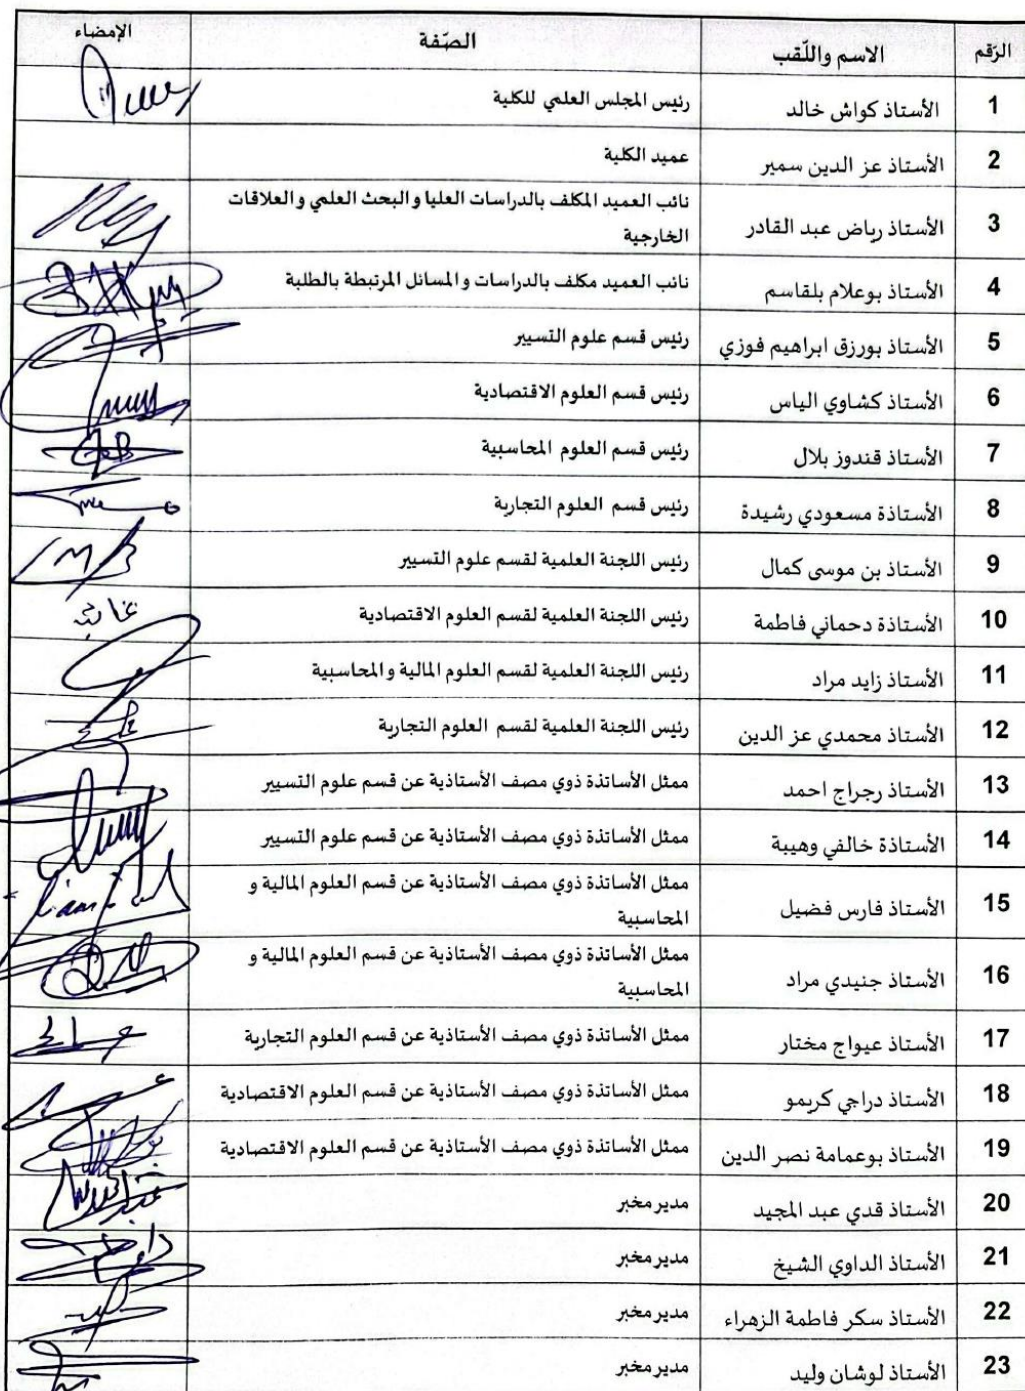 الرّقم الاسم واللّقب الصّفة الإمضاء
1 الأستاذ كواش خالد رئيس المجلس العلمي للكلية
2 الأستاذ عز الدين سمير عميد الكلية
3 الأستاذ رياض عبد القادر نائب العميد المكلف بالدراسات العليا والبحث العلمي والعلاقات
الخارجية
4 الأستاذ بوعلام بلقاسم نائب العميد مكلف بالدراسات والمسائل المرتبطة بالطلبة
5 الأستاذ بورزق ابراهيم فوزي رئيس قسم علوم التسيير
6 الأستاذ كشاوي الياس رئيس قسم العلوم الاقتصادية
7 الأستاذ قندوز بلال رئيس قسم العلوم المحاسبية
8 الأستاذة مسعودي رشيدة رئيس قسم العلوم التجارية
9 الأستاذ بن موسى كمال رئيس اللجنة العلمية لقسم علوم التسيير
10 الأستاذة دحماني فاطمة رئيس اللجنة العلمية لقسم العلوم الاقتصادية
11 الأستاذ زايد مراد رئيس اللجنة العلمية لقسم العلوم المالية والمحاسبية
12 الأستاذ محمدي عز الدين رئيس اللجنة العلمية لقسم العلوم التجارية
13 الأستاذ رجراج احمد ممثل الأساتذة ذوي مصف الأستاذية عن قسم علوم التسيير
14 الأستاذة خالفي وهيبة ممثل الأساتذة ذوي مصف الأستاذية عن قسم علوم التسيير
15 الأستاذ فارس فضيل ممثل الأساتذة ذوي مصف الأستاذية عن قسم العلوم المالية و
المحاسبية
16 الأستاذ جنيدي مراد ممثل الأساتذة ذوي مصف الأستاذية عن قسم العلوم المالية و
المحاسبية
17 الأستاذ عيواج مختار ممثل الأساتذة ذوي مصف الأستاذية عن قسم العلوم التجارية
18 الأستاذ دراجي كريمو ممثل الأساتذة ذوي مصف الأستاذية عن قسم العلوم الاقتصادية
19 الأستاذ بوعمامة نصر الدين ممثل الأساتذة ذوي مصف الأستاذية عن قسم العلوم الاقتصادية
20 الأستاذ قدي عبد المجيد مدير مخبر
21 الأستاذ الداوي الشيخ مدير مخبر
22 الأستاذ سكر فاطمة الزهراء مدير مخبر
23 الأستاذ لوشان وليد مدير مخبر